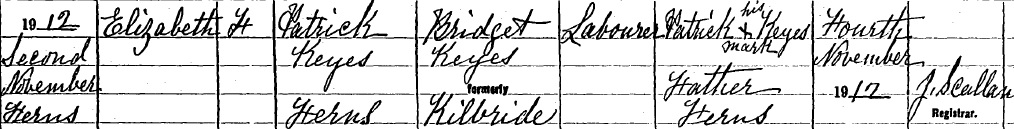 1912 Elizabeth F Patrick Bridget Labourer Patrick his + Keyes Fourth
Second Keyes Keyes mark November
November formerly Father 1912 J. Scallan
Ferns Ferns Kilbride Ferns Registrar.